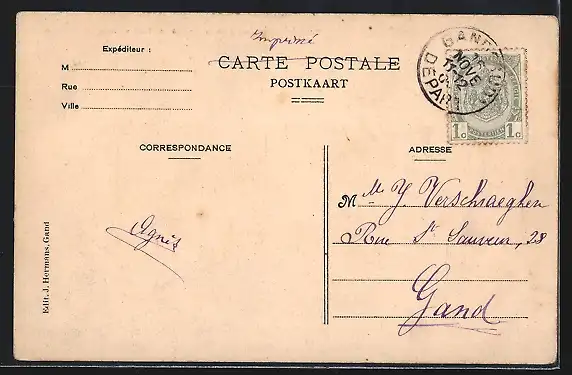 Imprimé
Expéditeur :
M
Rue
Ville
CARTE POSTALE
POSTKAART
GAND
NOVE
11-12
DEPART
1c 1c
CORRESPONDANCE
ADRESSE
Mlle Y Verschraeghen
Rue St Sauveur, 28
Gand
Agnès
Edit. J. Hermans, Gand